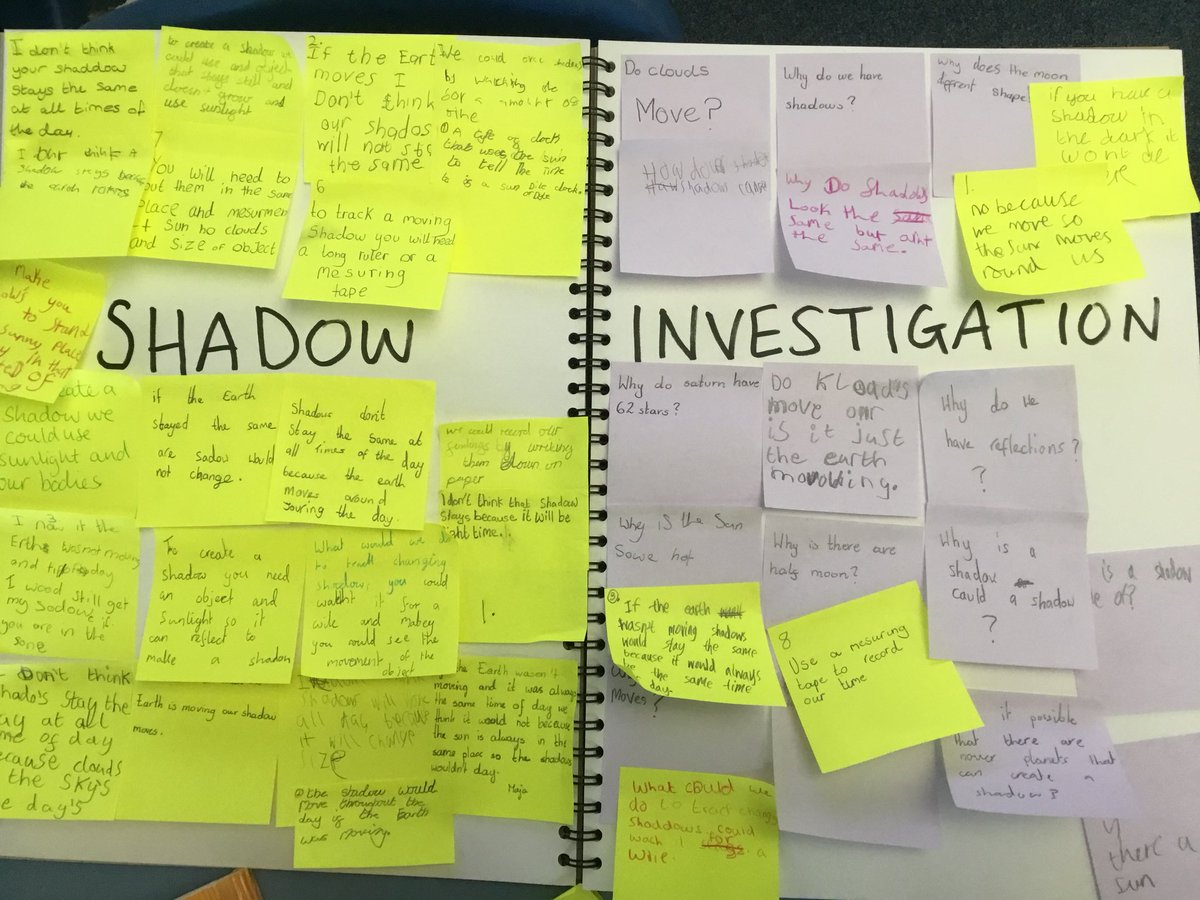 I don't think
your shaddow
stays the same
at all times of
the day.
to create a shadow we
could use and object
that stays still and
doesn't grow and
use sunlight
7
You will need to
put them in the same
Place and mesurment
sun no clouds
and size of object
2.
If the Eart
moves I
Don't think
our shados
will not sta
the same
6
to track a moving
Shadow you will need
a long ruler or a
mesuring
tape
We could
by watching the
for a amount of
time
that uses the sun
to tell the time
is a sun
make
you
to stand
sunny place
in that
SHADOW
eate a
shadow we
could use
sunlight and
our bodies
if the Earth
stayed the same
are sadow would
not change.
Shadows don't
Stay the same at
all times of the day
because the earth
moves around
during the day.
we could record our
them down on
paper
I don't think that Shadow
Stays because it will be
night time.
1.
I now if the
Erth wasnot moving
I wood still get
my sadow if
you are in the
same
To create a
Shadow you need
an object and
Sunlight so it
can reflect to
make a shadow
What would we
changing
you could
for a
wile and
you could see the
movement of the
object
I Don't think
shados Stay the
ay at all
me of day
ecause clouds
the sky's
e day's
Earth is moving our shadow
moves.
shadow will
all day because
it will change
size
the shadow would
move throughout the
day if the Earth
was moving.
the Earth wasn't
moving and it was always
the same time of day we
think it would not because
the sun is always in the
same place so the shadow
wouldn't day.
Maja
Do clouds
Move?
Why do we have
shadows?
why does the moon
shape
if you have a
shadow in
the dark it
wont be
shadow
Why Do Shadows
Look the
same but arnt
the same.
1.
no because
we move so
the sun moves
round us
INVESTIGATION
Why do saturn have
62 stars?
DO
move our
is it just
the earth
Why do we
have reflections?
?
Why is the sun
Sowe hot
Why is there are
half moon?
Why is a
shadow
could a shadow
?
is a shadow
e of?
3
If the earth
wasn't moving shadows
would stay the same
because it would always
be the same time
day.
moves?
8
Use a mesuring
tape to record
our time
it possible
that there are
planets that
can create a
shadow?
What could we
do to tract
Shaddows could
a
wile.
there a
sun